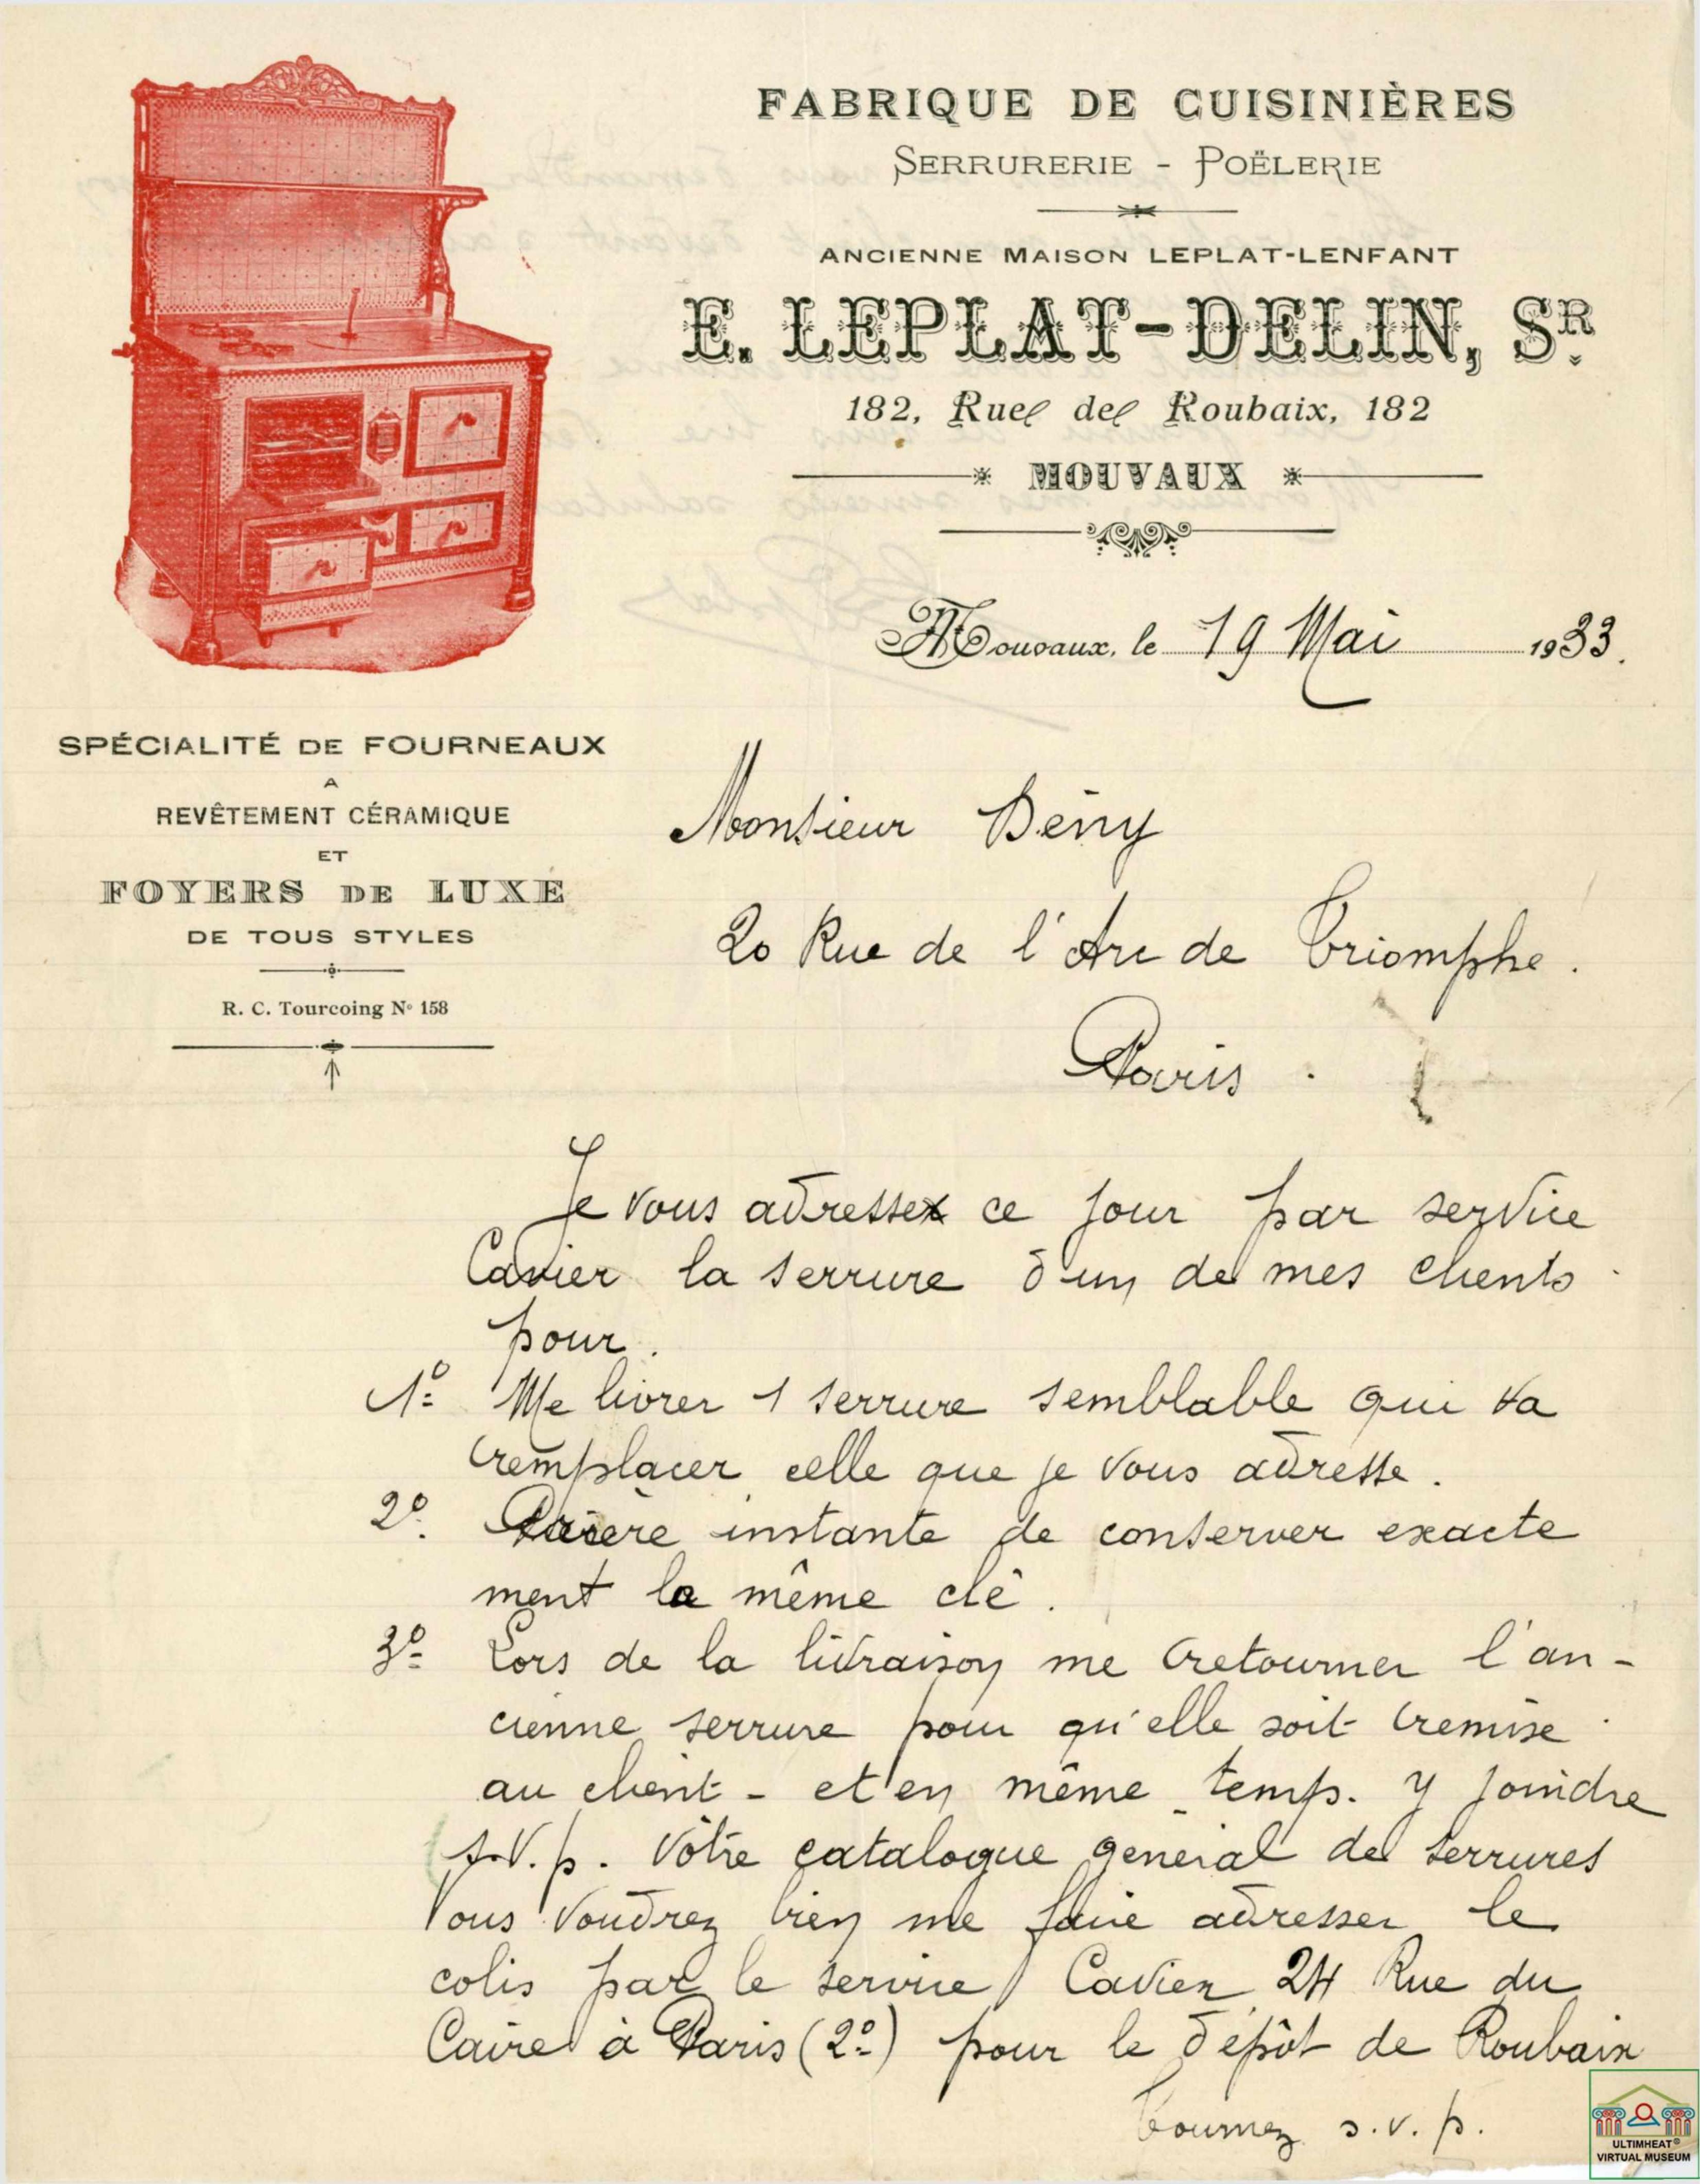 FABRIQUE DE CUISINIÈRES
SERRURERIE - POËLERIE
ANCIENNE MAISON LEPLAT-LENFANT
E. LEPLAT-DELIN, SR.
182, Rue de Roubaix, 182
MOUVAUX
Mouvaux, le 19 Mai 1933.
SPÉCIALITÉ DE FOURNEAUX
A
REVÊTEMENT CÉRAMIQUE
ET
FOYERS DE LUXE
DE TOUS STYLES
R. C. Tourcoing No 158
Monsieur Dény
20 Rue de l'Arc de Triomphe.
Paris.
Je vous adresse ce jour par service
Cavier la serrure d'un de mes clients
pour.
1o Me livrer 1 serrure semblable qui va
remplacer celle que je vous adresse.
2o Prière instante de conserver exacte
ment la même clé.
3o Lors de la livraison me retourner l'an-
cienne serrure pour qu'elle soit remise
au client - et en même temps. y joindre
s.v.p. vôtre catalogue général de serrures
Vous voudrez bien me faire adresser le
colis par le service Cavier 24 Rue du
Caire à Paris (2o) pour le dépôt de Roubaix
Tournez s.v.p.
ULTIMHEAT®
VIRTUAL MUSEUM